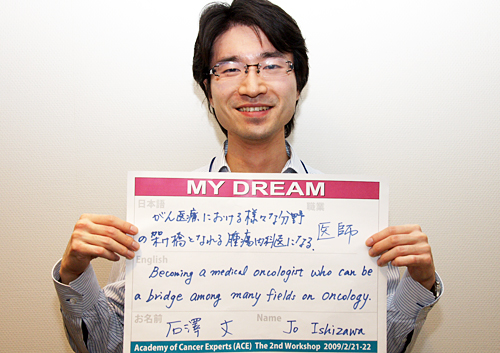 MY DREAM
日本語 職業
がん医療における様々な分野
の架け橋となれる腫瘍内科医になる. 医師
English
Becoming a medical oncologist who can be
a bridge among many fields on oncology.
お名前 石澤 丈 Name Jo Ishizawa
Academy of Cancer Experts (ACE) The 2nd Workshop 2009/2/21-22